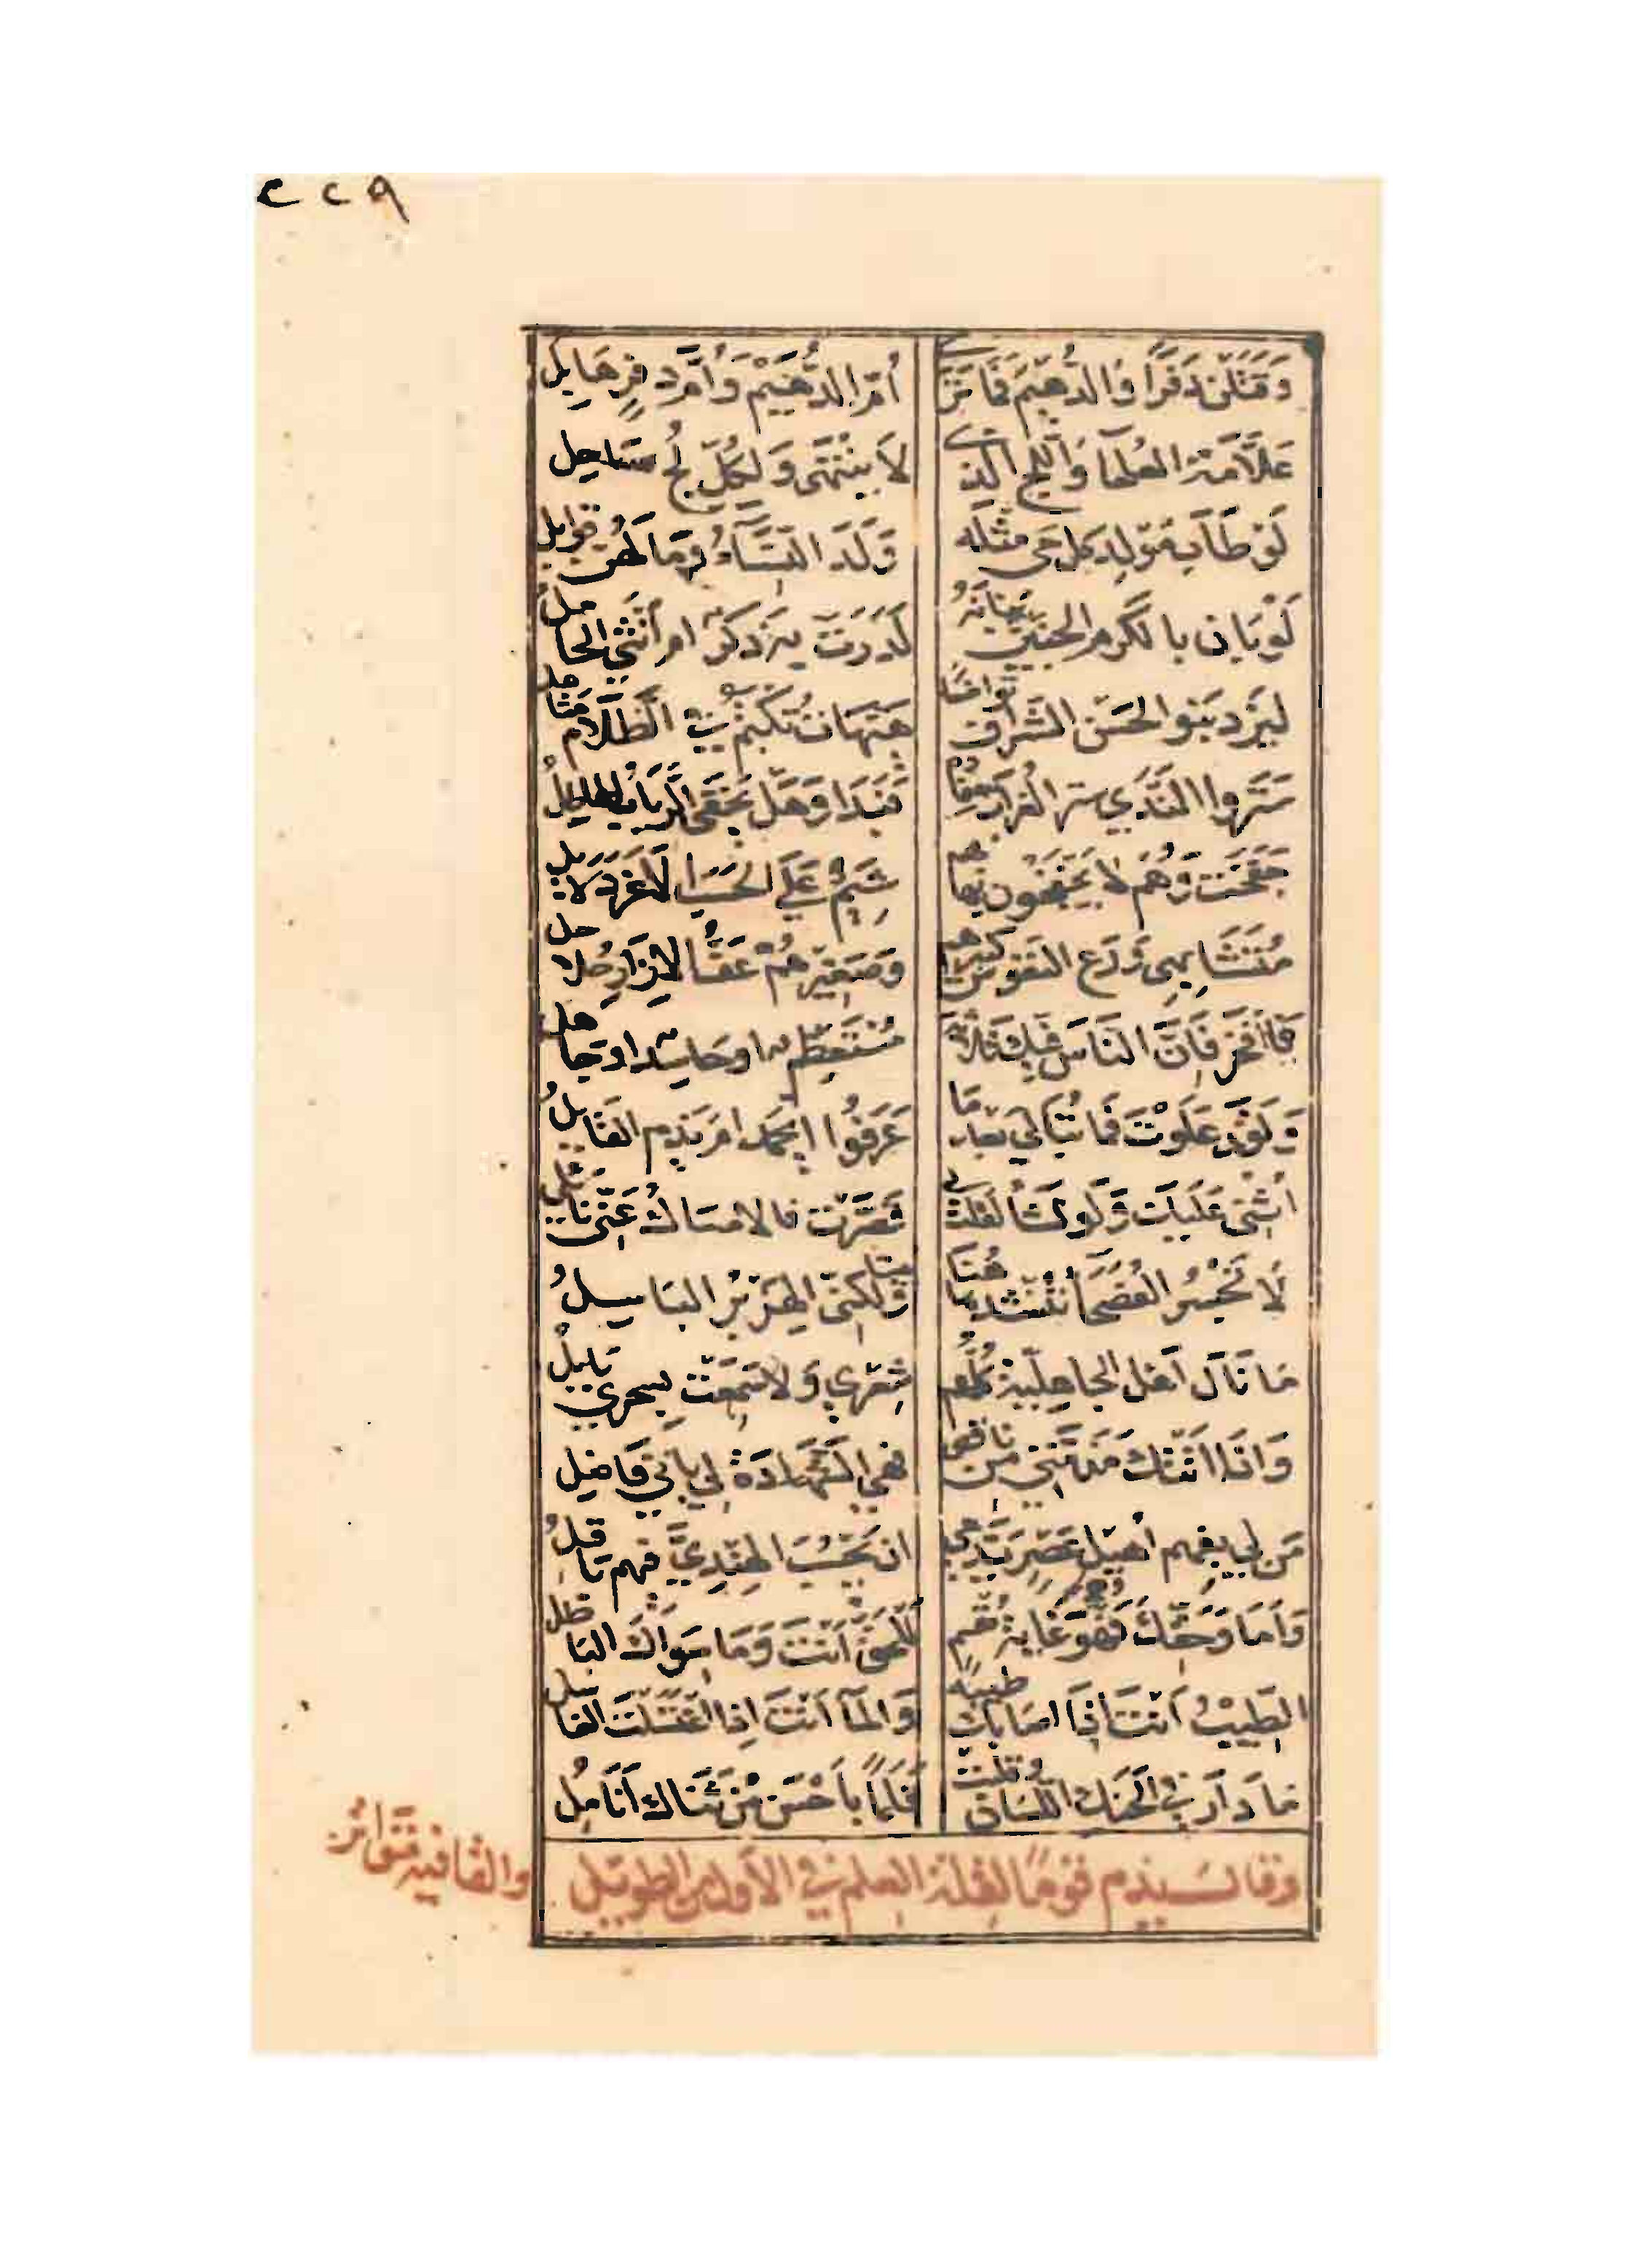 ٢٢٩
وَقَتَلْنَ دَفْرًا وَالدُّهَيْمَ فَمَا تَرَى أُمُّ الدُّهَيْمِ وَأُمُّ دَفْرٍ هَابِلُ
عَلَّامَةُ العُلَمَا وَاللُّجُّ الَّذِي لَا يَنْتَهِي وَلِكُلِّ لُجٍّ سَاحِلُ
لَوْ طَابَ مَوْلِدُ كُلِّ حَيٍّ مِثْلَهُ وَلَدَ النِّسَاءُ وَمَا لَهُنَّ قَوَابِلُ
لَوْ بَانَ بِالكَرَمِ الجَنِينُ بَيَانَهُ لَدَرَتْ بِهِ ذَكَرٌ أَمْ أُنْثَى الحَامِلُ
لِيَزِدْ بَنُو الحَسَنِ الشِّرَافُ تَوَاضُعًا هَيْهَاتَ تُكْتَمُ فِي الظَّلَامِ مَشَاعِلُ
سَتَرُوا النَّدَى سَتْرَ الغُرَابِ سِفَادَهُ فَبَدَا وَهَلْ يَخْفَى الرَّبَابُ الهَاطِلُ
جَفَخَتْ وَهُمْ لَا يَجْفَخُونَ بِهَا بِهِمْ شِيَمٌ عَلَى الحَسَبِ الأَغَرِّ دَلَائِلُ
مُتَشَابِهِي وَرَعِ النُّفُوسِ كَبِيرُهُمْ وَصَغِيرُهُمْ عَفُّ الإِزَارِ حُلَاحِلُ
فَافْخَرْ فَإِنَّ النَّاسَ فِيكَ ثَلَاثَةٌ مُسْتَعْظِمٌ أَوْ حَاسِدٌ أَوْ جَاهِلُ
وَلَقَدْ عَلَوْتَ فَمَا تُبَالِي بَعْدَ مَا عَرَفُوا أَيَحْمَدُ أَمْ يَذُمُّ القَائِلُ
أُثْنِي عَلَيْكَ وَلَوْ تَشَا لَقُلْتَ لِي قَصَّرْتَ فَالإِمْسَاكُ عَنِّي نَائِلُ
لَا تَجْسُرُ الفُصَحَا تُنْشِدُ هَهُنَا بَيْتًا وَلَكِنِّي الهِزَبْرُ البَاسِلُ
مَا نَالَ أَهْلُ الجَاهِلِيَّةِ كُلُّهُمْ شِعْرِي وَلَا سَمِعَتْ بِسِحْرِي بَابِلُ
وَإِذَا أَتَتْكَ مَذَمَّتِي مِنْ نَاقِصٍ فَهِيَ الشَّهَادَةُ لِي بِأَنِّي فَاضِلُ
مَنْ لِي بِفَهْمِ أُهَيْلِ عَصْرٍ يَدَّعِي أَنْ يَحْسُبَ الهِنْدِيَّ فِيهِمْ بَاقِلُ
وَأَمَا وَحَقِّكَ وَهُوَ غَايَةُ مُقْسِمٍ لَلْحَقُّ أَنْتَ وَمَا سِوَاكَ البَاطِلُ
الطِّيبُ أَنْتَ إِذَا أَصَابَكَ طِيبُهُ وَالمَا أَنْتَ إِذَا اغْتَسَلْتَ الغَاسِلُ
مَا دَارَ فِي الحَنَكِ اللِّسَانُ وَقَلَّبَتْ قَلَمًا بِأَحْسَنَ مِنْ ثَنَاكَ أَنَامِلُ
وقال يذم قومًا لقلة العلم في الأول من الطويل والقافية متواتر